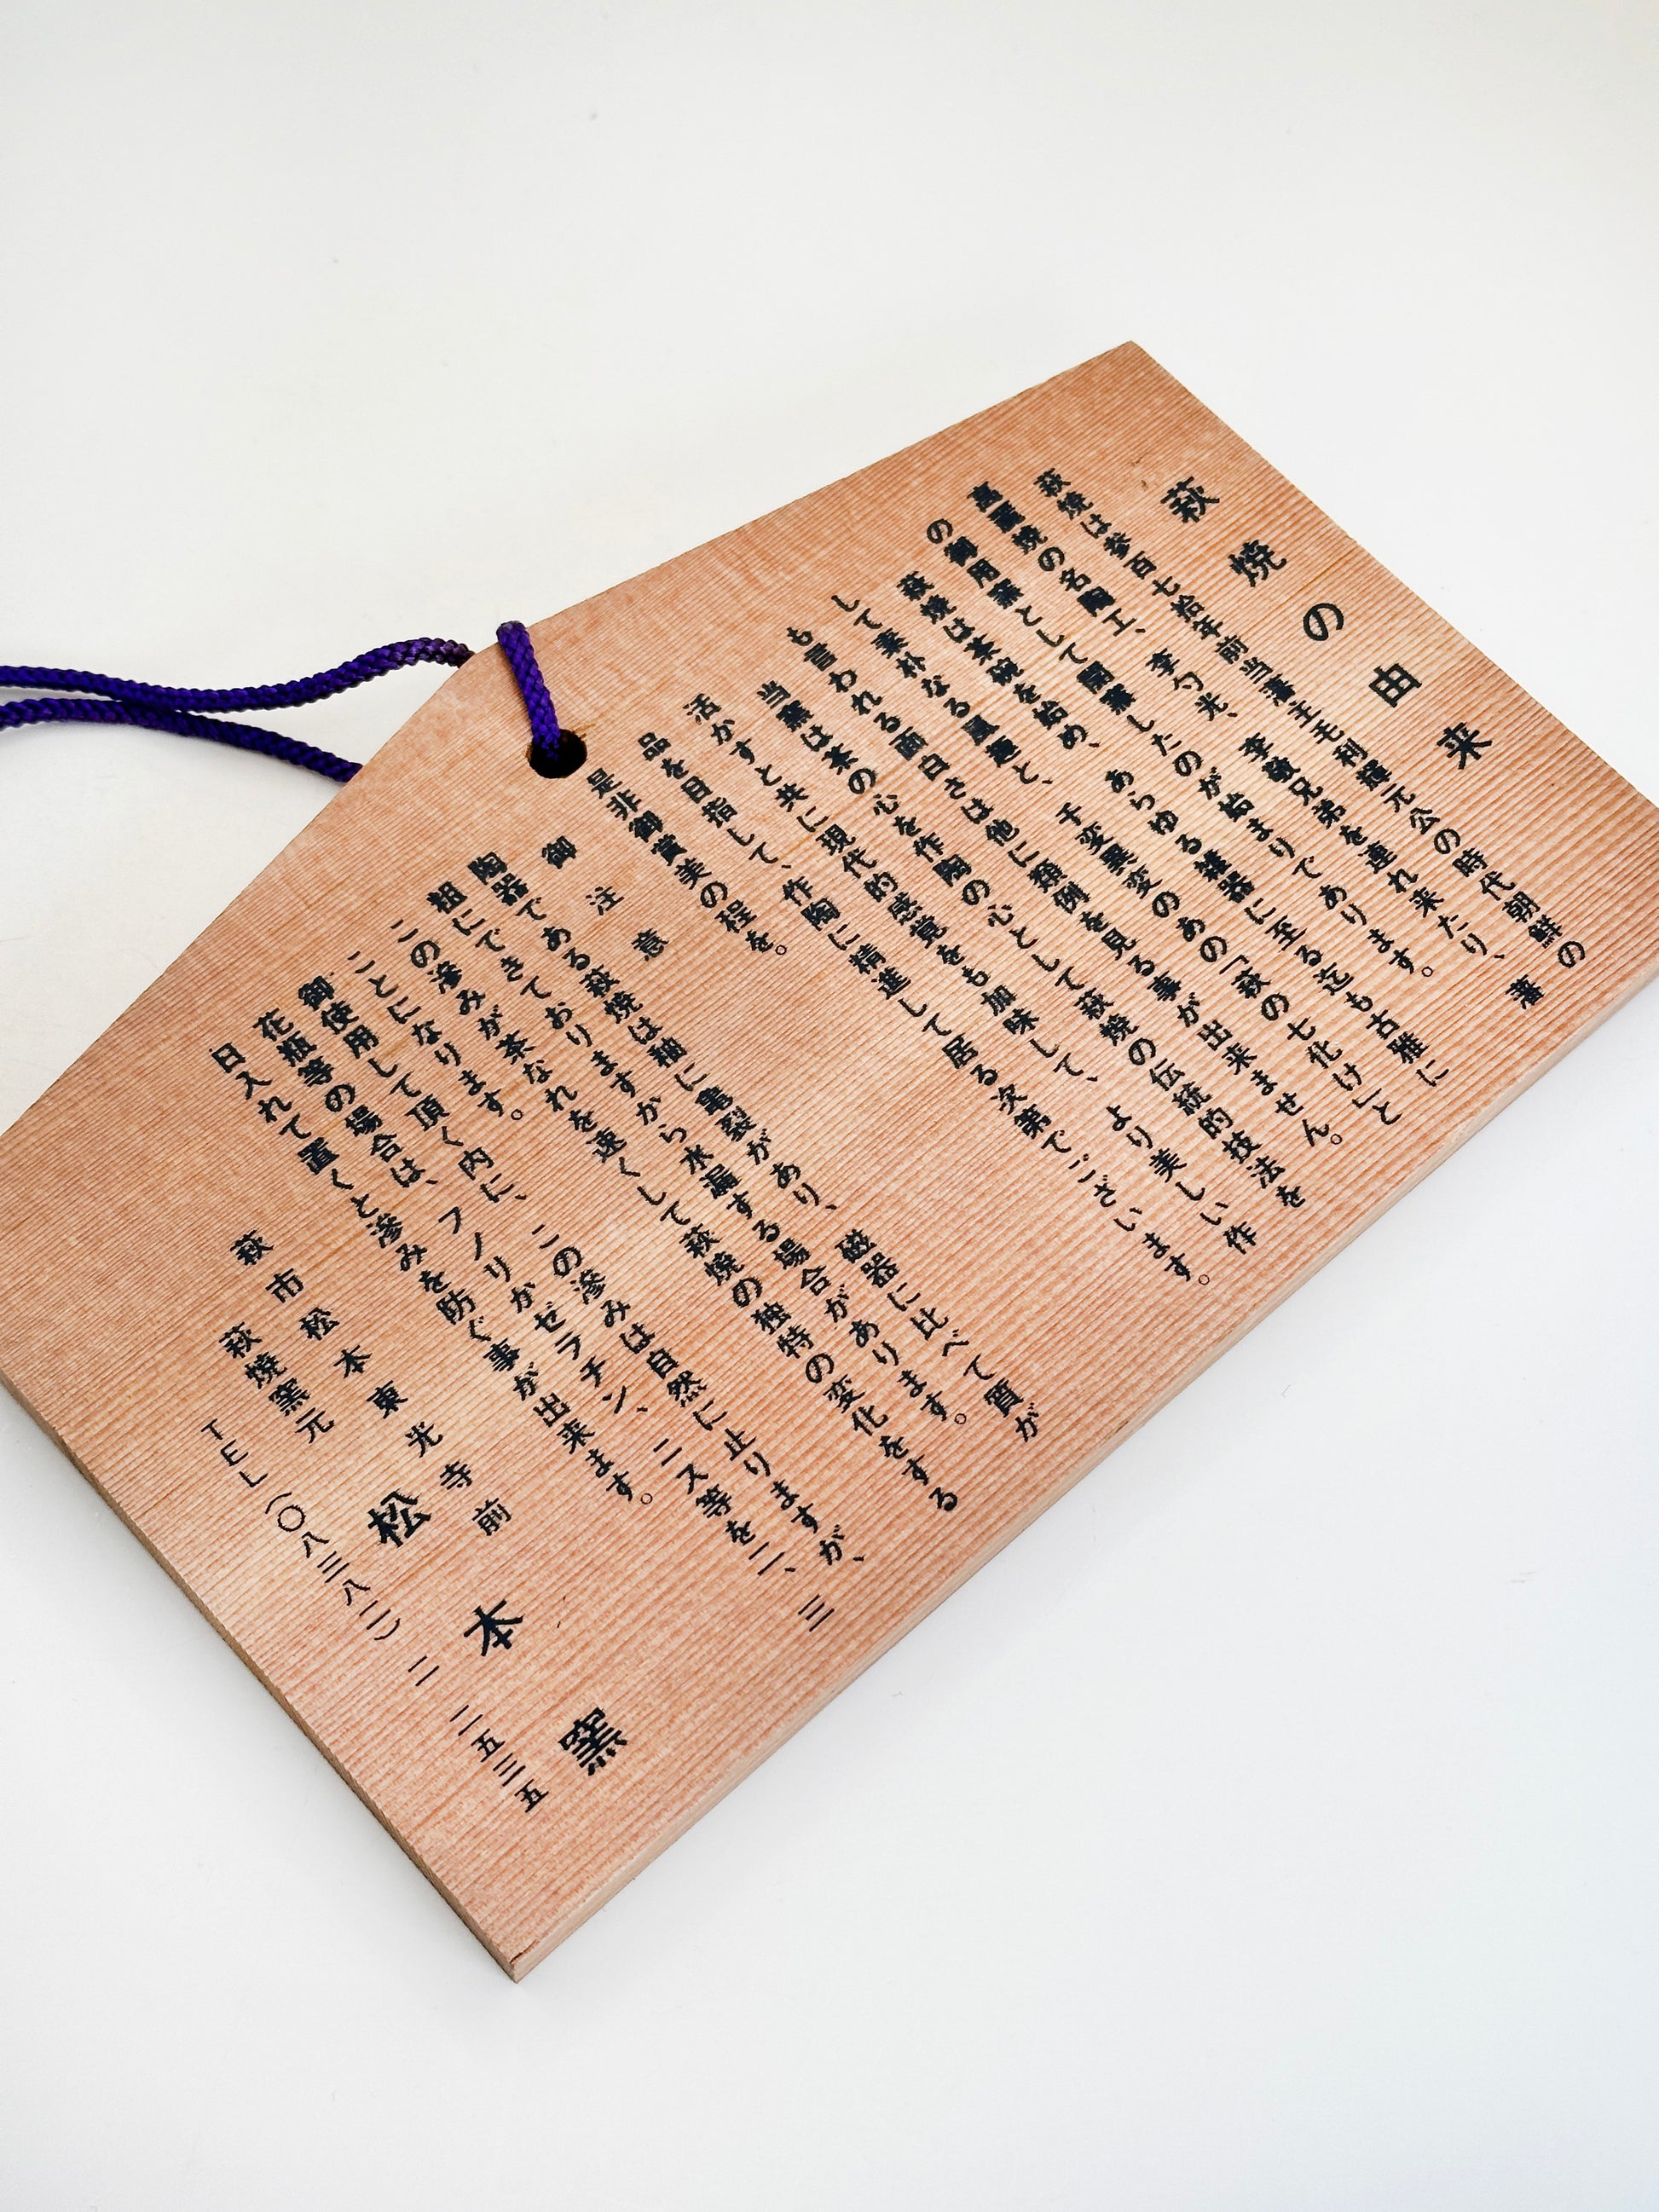 萩焼の由来
萩焼は参百七拾年前当藩主毛利輝元公の時代朝鮮の
高麗焼の名陶工、李勺光、李敬兄弟を連れ来たり、藩
の御用窯として開窯したのが始まりであります。
萩焼は茶碗を始め、あらゆる雑器に至る迄も古雅に
して素朴なる風趣と、千変異変のあの「萩の七化け」と
も言われる面白さは他に類例を見る事が出来ません。
当窯は茶の心を作陶の心として萩焼の伝統的技法を
活かすと共に現代的感覚をも加味して、より美しい作
品を目指して、作陶に精進して居る次第でございます。
是非御賞美の程を。
御注意
陶器である萩焼は釉に亀裂があり、磁器に比べて質が
粗にできておりますから水漏する場合があります。
この滲みが茶なれを速くして萩焼の独特の変化をする
ことになります。
御使用して頂く内に、この滲みは自然に止りますが、
花瓶等の場合は、フノリかゼラチン、ニス等を二、三
日入れて置くと滲みを防ぐ事が出来ます。
萩市松本東光寺前
萩焼窯元 松本窯
TEL(〇八三八二)二 一五三五